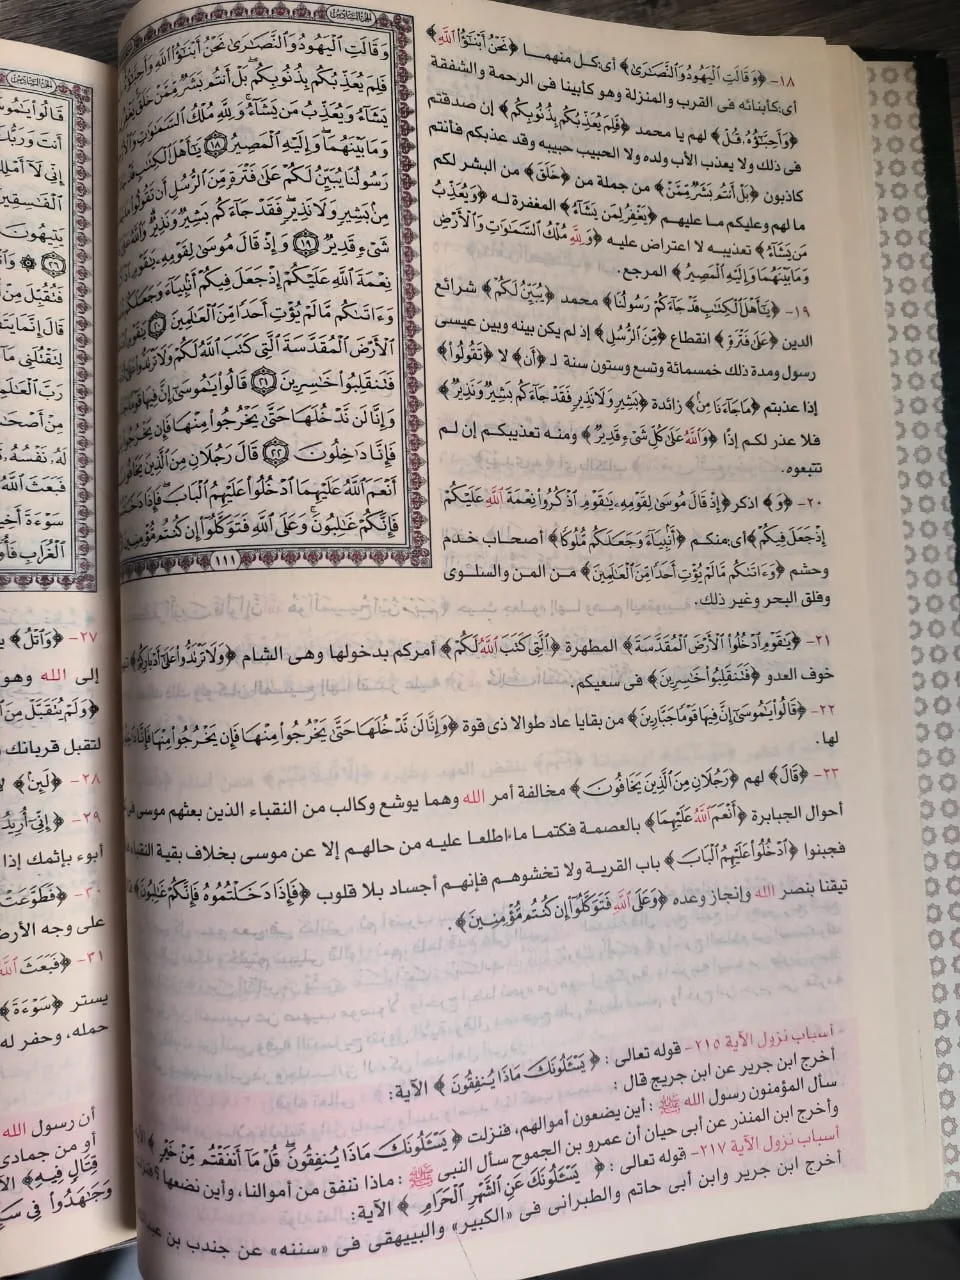 الجزء السادس
وَقَالَتِ ٱلْيَهُودُ وَٱلنَّصَٰرَىٰ نَحْنُ أَبْنَٰٓؤُا۟ ٱللَّهِ وَأَحِبَّٰٓؤُهُۥ
فَلِمَ يُعَذِّبُكُم بِذُنُوبِكُم بَلْ أَنتُم بَشَرٌ مِّمَّنْ خَلَقَ يَغْفِرُ
يَشَآءُ وَيُعَذِّبُ مَن يَشَآءُ وَلِلَّهِ مُلْكُ ٱلسَّمَٰوَٰتِ وَٱلْأَرْضِ
وَمَا بَيْنَهُمَا وَإِلَيْهِ ٱلْمَصِيرُ ١٨ يَٰٓأَهْلَ ٱلْكِتَٰبِ قَدْ جَآءَكُمْ
رَسُولُنَا يُبَيِّنُ لَكُمْ عَلَىٰ فَتْرَةٍ مِّنَ ٱلرُّسُلِ أَن تَقُولُوا۟ مَا
مِنۢ بَشِيرٍ وَلَا نَذِيرٍ فَقَدْ جَآءَكُم بَشِيرٌ وَنَذِيرٌ وَٱللَّهُ عَلَىٰ
شَىْءٍ قَدِيرٌ ١٩ وَإِذْ قَالَ مُوسَىٰ لِقَوْمِهِۦ يَٰقَوْمِ
نِعْمَةَ ٱللَّهِ عَلَيْكُمْ إِذْ جَعَلَ فِيكُمْ أَنۢبِيَآءَ وَجَعَلَكُم
وَءَاتَىٰكُم مَّا لَمْ يُؤْتِ أَحَدًا مِّنَ ٱلْعَٰلَمِينَ ٢٠ يَٰقَوْمِ
ٱلْأَرْضَ ٱلْمُقَدَّسَةَ ٱلَّتِى كَتَبَ ٱللَّهُ لَكُمْ وَلَا تَرْتَدُّوا۟ عَلَىٰٓ
فَتَنقَلِبُوا۟ خَٰسِرِينَ ٢١ قَالُوا۟ يَٰمُوسَىٰٓ إِنَّ فِيهَا قَوْمًا
وَإِنَّا لَن نَّدْخُلَهَا حَتَّىٰ يَخْرُجُوا۟ مِنْهَا فَإِن يَخْرُجُوا۟
فَإِنَّا دَٰخِلُونَ ٢٢ قَالَ رَجُلَانِ مِنَ ٱلَّذِينَ يَخَافُونَ
أَنْعَمَ ٱللَّهُ عَلَيْهِمَا ٱدْخُلُوا۟ عَلَيْهِمُ ٱلْبَابَ فَإِذَا
فَإِنَّكُمْ غَٰلِبُونَ وَعَلَى ٱللَّهِ فَتَوَكَّلُوٓا۟ إِن كُنتُم مُّؤْمِنِينَ
١١١
١٨- ﴿وَقَالَتِ ٱلْيَهُودُ وَٱلنَّصَٰرَىٰ﴾ أى: كل منهما ﴿نَحْنُ أَبْنَٰٓؤُا۟ ٱللَّهِ﴾
أى: كأبنائه فى القرب والمنزلة وهو كأبينا فى الرحمة والشفقة
﴿وَأَحِبَّٰٓؤُهُۥ قُلْ﴾ لهم يا محمد ﴿فَلِمَ يُعَذِّبُكُم بِذُنُوبِكُم﴾ إن صدقتم
فى ذلك ولا يعذب الأب ولده ولا الحبيب حبيبه وقد عذبكم فأنتم
كاذبون ﴿بَلْ أَنتُم بَشَرٌ مِّمَّنْ﴾ من جملة من ﴿خَلَقَ﴾ من البشر لكم
ما لهم وعليكم ما عليهم ﴿يَغْفِرُ لِمَن يَشَآءُ﴾ المغفرة له ﴿وَيُعَذِّبُ
مَن يَشَآءُ﴾ تعذيبه لا اعتراض عليه ﴿وَلِلَّهِ مُلْكُ ٱلسَّمَٰوَٰتِ وَٱلْأَرْضِ
وَمَا بَيْنَهُمَا وَإِلَيْهِ ٱلْمَصِيرُ﴾ المرجع.
١٩- ﴿يَٰٓأَهْلَ ٱلْكِتَٰبِ قَدْ جَآءَكُمْ رَسُولُنَا﴾ محمد ﴿يُبَيِّنُ لَكُمْ﴾ شرائع
الدين ﴿عَلَىٰ فَتْرَةٍ﴾ انقطاع ﴿مِّنَ ٱلرُّسُلِ﴾ إذ لم يكن بينه وبين عيسى
رسول ومدة ذلك خمسمائة وتسع وستون سنة لـ ﴿أَن﴾ لا ﴿تَقُولُوا۟﴾
إذا عذبتم ﴿مَا جَآءَنَا مِنۢ﴾ زائدة ﴿بَشِيرٍ وَلَا نَذِيرٍ فَقَدْ جَآءَكُم بَشِيرٌ وَنَذِيرٌ﴾
فلا عذر لكم إذًا ﴿وَٱللَّهُ عَلَىٰ كُلِّ شَىْءٍ قَدِيرٌ﴾ ومنه تعذيبكم إن لم
تتبعوه.
٢٠- ﴿وَ﴾ اذكر ﴿إِذْ قَالَ مُوسَىٰ لِقَوْمِهِۦ يَٰقَوْمِ ٱذْكُرُوا۟ نِعْمَةَ ٱللَّهِ عَلَيْكُمْ
إِذْ جَعَلَ فِيكُمْ﴾ أى: منكم ﴿أَنۢبِيَآءَ وَجَعَلَكُم مُّلُوكًا﴾ أصحاب خدم
وحشم ﴿وَءَاتَىٰكُم مَّا لَمْ يُؤْتِ أَحَدًا مِّنَ ٱلْعَٰلَمِينَ﴾ من المن والسلوى
وفلق البحر وغير ذلك.
٢١- ﴿يَٰقَوْمِ ٱدْخُلُوا۟ ٱلْأَرْضَ ٱلْمُقَدَّسَةَ﴾ المطهرة ﴿ٱلَّتِى كَتَبَ ٱللَّهُ لَكُمْ﴾ أمركم بدخولها وهى الشام ﴿وَلَا تَرْتَدُّوا۟ عَلَىٰٓ أَدْبَارِكُمْ﴾
خوف العدو ﴿فَتَنقَلِبُوا۟ خَٰسِرِينَ﴾ فى سعيكم.
٢٢- ﴿قَالُوا۟ يَٰمُوسَىٰٓ إِنَّ فِيهَا قَوْمًا جَبَّارِينَ﴾ من بقايا عاد طوالا ذى قوة ﴿وَإِنَّا لَن نَّدْخُلَهَا حَتَّىٰ يَخْرُجُوا۟ مِنْهَا فَإِن يَخْرُجُوا۟ مِنْهَا فَإِنَّا
لها.
٢٣- ﴿قَالَ﴾ لهم ﴿رَجُلَانِ مِنَ ٱلَّذِينَ يَخَافُونَ﴾ مخالفة أمر الله وهما يوشع وكالب من النقباء الذين بعثهم موسى فى
أحوال الجبابرة ﴿أَنْعَمَ ٱللَّهُ عَلَيْهِمَا﴾ بالعصمة فكتما ما اطلعا عليه من حالهم إلا عن موسى بخلاف بقية النقباء
فجبنوا ﴿ٱدْخُلُوا۟ عَلَيْهِمُ ٱلْبَابَ﴾ باب القرية ولا تخشوهم فإنهم أجساد بلا قلوب ﴿فَإِذَا دَخَلْتُمُوهُ فَإِنَّكُمْ غَٰلِبُونَ﴾
تيقنا بنصر الله وإنجاز وعده ﴿وَعَلَى ٱللَّهِ فَتَوَكَّلُوٓا۟ إِن كُنتُم مُّؤْمِنِينَ﴾.
أسباب نزول الآية ٢١٥- قوله تعالى: ﴿يَسْـَٔلُونَكَ مَاذَا يُنفِقُونَ﴾ الآية:
أخرج ابن جرير عن ابن جريج قال:
سأل المؤمنون رسول الله ﷺ: أين يضعون أموالهم، فنزلت ﴿يَسْـَٔلُونَكَ مَاذَا يُنفِقُونَ قُلْ مَآ أَنفَقْتُم مِّنْ خَيْرٍ﴾
وأخرج ابن المنذر عن أبى حيان أن عمرو بن الجموح سأل النبى ﷺ: ماذا ننفق من أموالنا، وأين نضعها؟
أسباب نزول الآية ٢١٧- قوله تعالى: ﴿يَسْـَٔلُونَكَ عَنِ ٱلشَّهْرِ ٱلْحَرَامِ﴾ الآية:
أخرج ابن جرير وابن أبى حاتم والطبرانى فى «الكبير» والبيهقى فى «سننه» عن جندب بن
قَالُوا۟ يَٰمُوسَىٰٓ
أَنتَ وَرَبُّكَ
إِنِّى لَآ أَمْلِكُ
ٱلْفَٰسِقِينَ
يَتِيهُونَ
٢٦
فَتُقُبِّلَ مِنْ
قَالَ إِنَّمَا
لِتَقْتُلَنِى مَآ
رَبَّ ٱلْعَٰلَمِينَ
مِنْ أَصْحَٰبِ
لَهُۥ نَفْسُهُۥ
فَبَعَثَ ٱللَّهُ
سَوْءَةَ أَخِيهِ
ٱلْغُرَابِ
٢٧- ﴿وَٱتْلُ﴾
إلى الله وهو
﴿وَلَمْ يُتَقَبَّلْ مِنَ
لتقبل قربانك
٢٨- ﴿لَئِنۢ﴾
٢٩- ﴿إِنِّىٓ أُرِيدُ
أبوء بإثمك إذا
٣٠- ﴿فَطَوَّعَتْ
على وجه الأرض
٣١- ﴿فَبَعَثَ ٱللَّهُ
يستر ﴿سَوْءَةَ﴾
حمله، وحفر له
أن رسول الله
أو من جمادى
قِتَالٍ فِيهِ﴾
وَجَٰهَدُوا۟ فِى